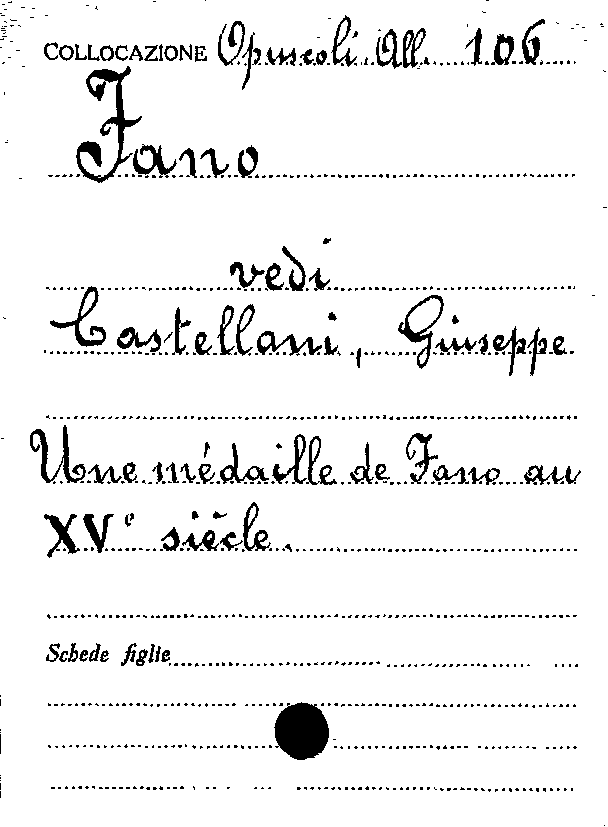 COLLOCAZIONE Opuscoli. All. 106
Fano
vedi
Castellani, Giuseppe
Une médaille de Fano au
XVe siècle.
Schede figlie